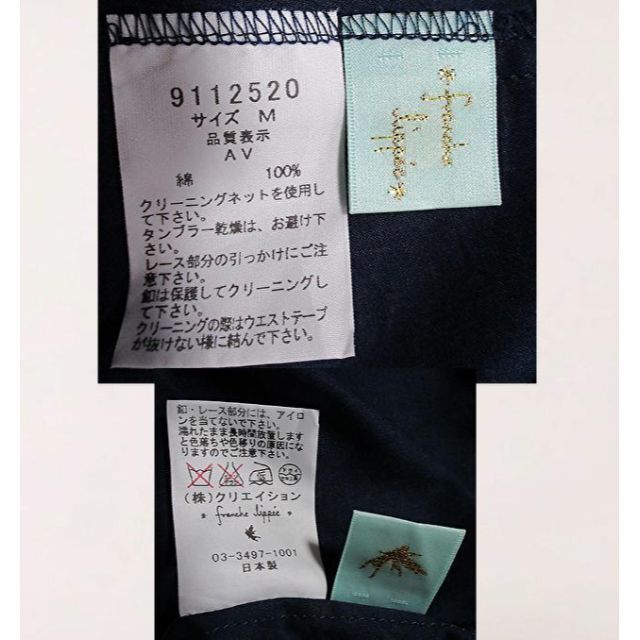 9112520
サイズ M
品質表示
AV
綿 100%
クリーニングネットを使用し
て下さい。
タンブラー乾燥は、お避け下
さい。
レース部分の引っかけにご注
意下さい。
釦は保護してクリーニングし
て下さい。
クリーニングの際はウエストテープ
が抜けない様に結んで下さい。
franche
lippée
釦・レース部分には、アイロ
ンを当てないで下さい。
濡れたまま長時間放置します
と色落ちや色移りの原因にな
りますのでご注意下さい。
(株)クリエイション
franche lippée
03-3497-1001
日本製